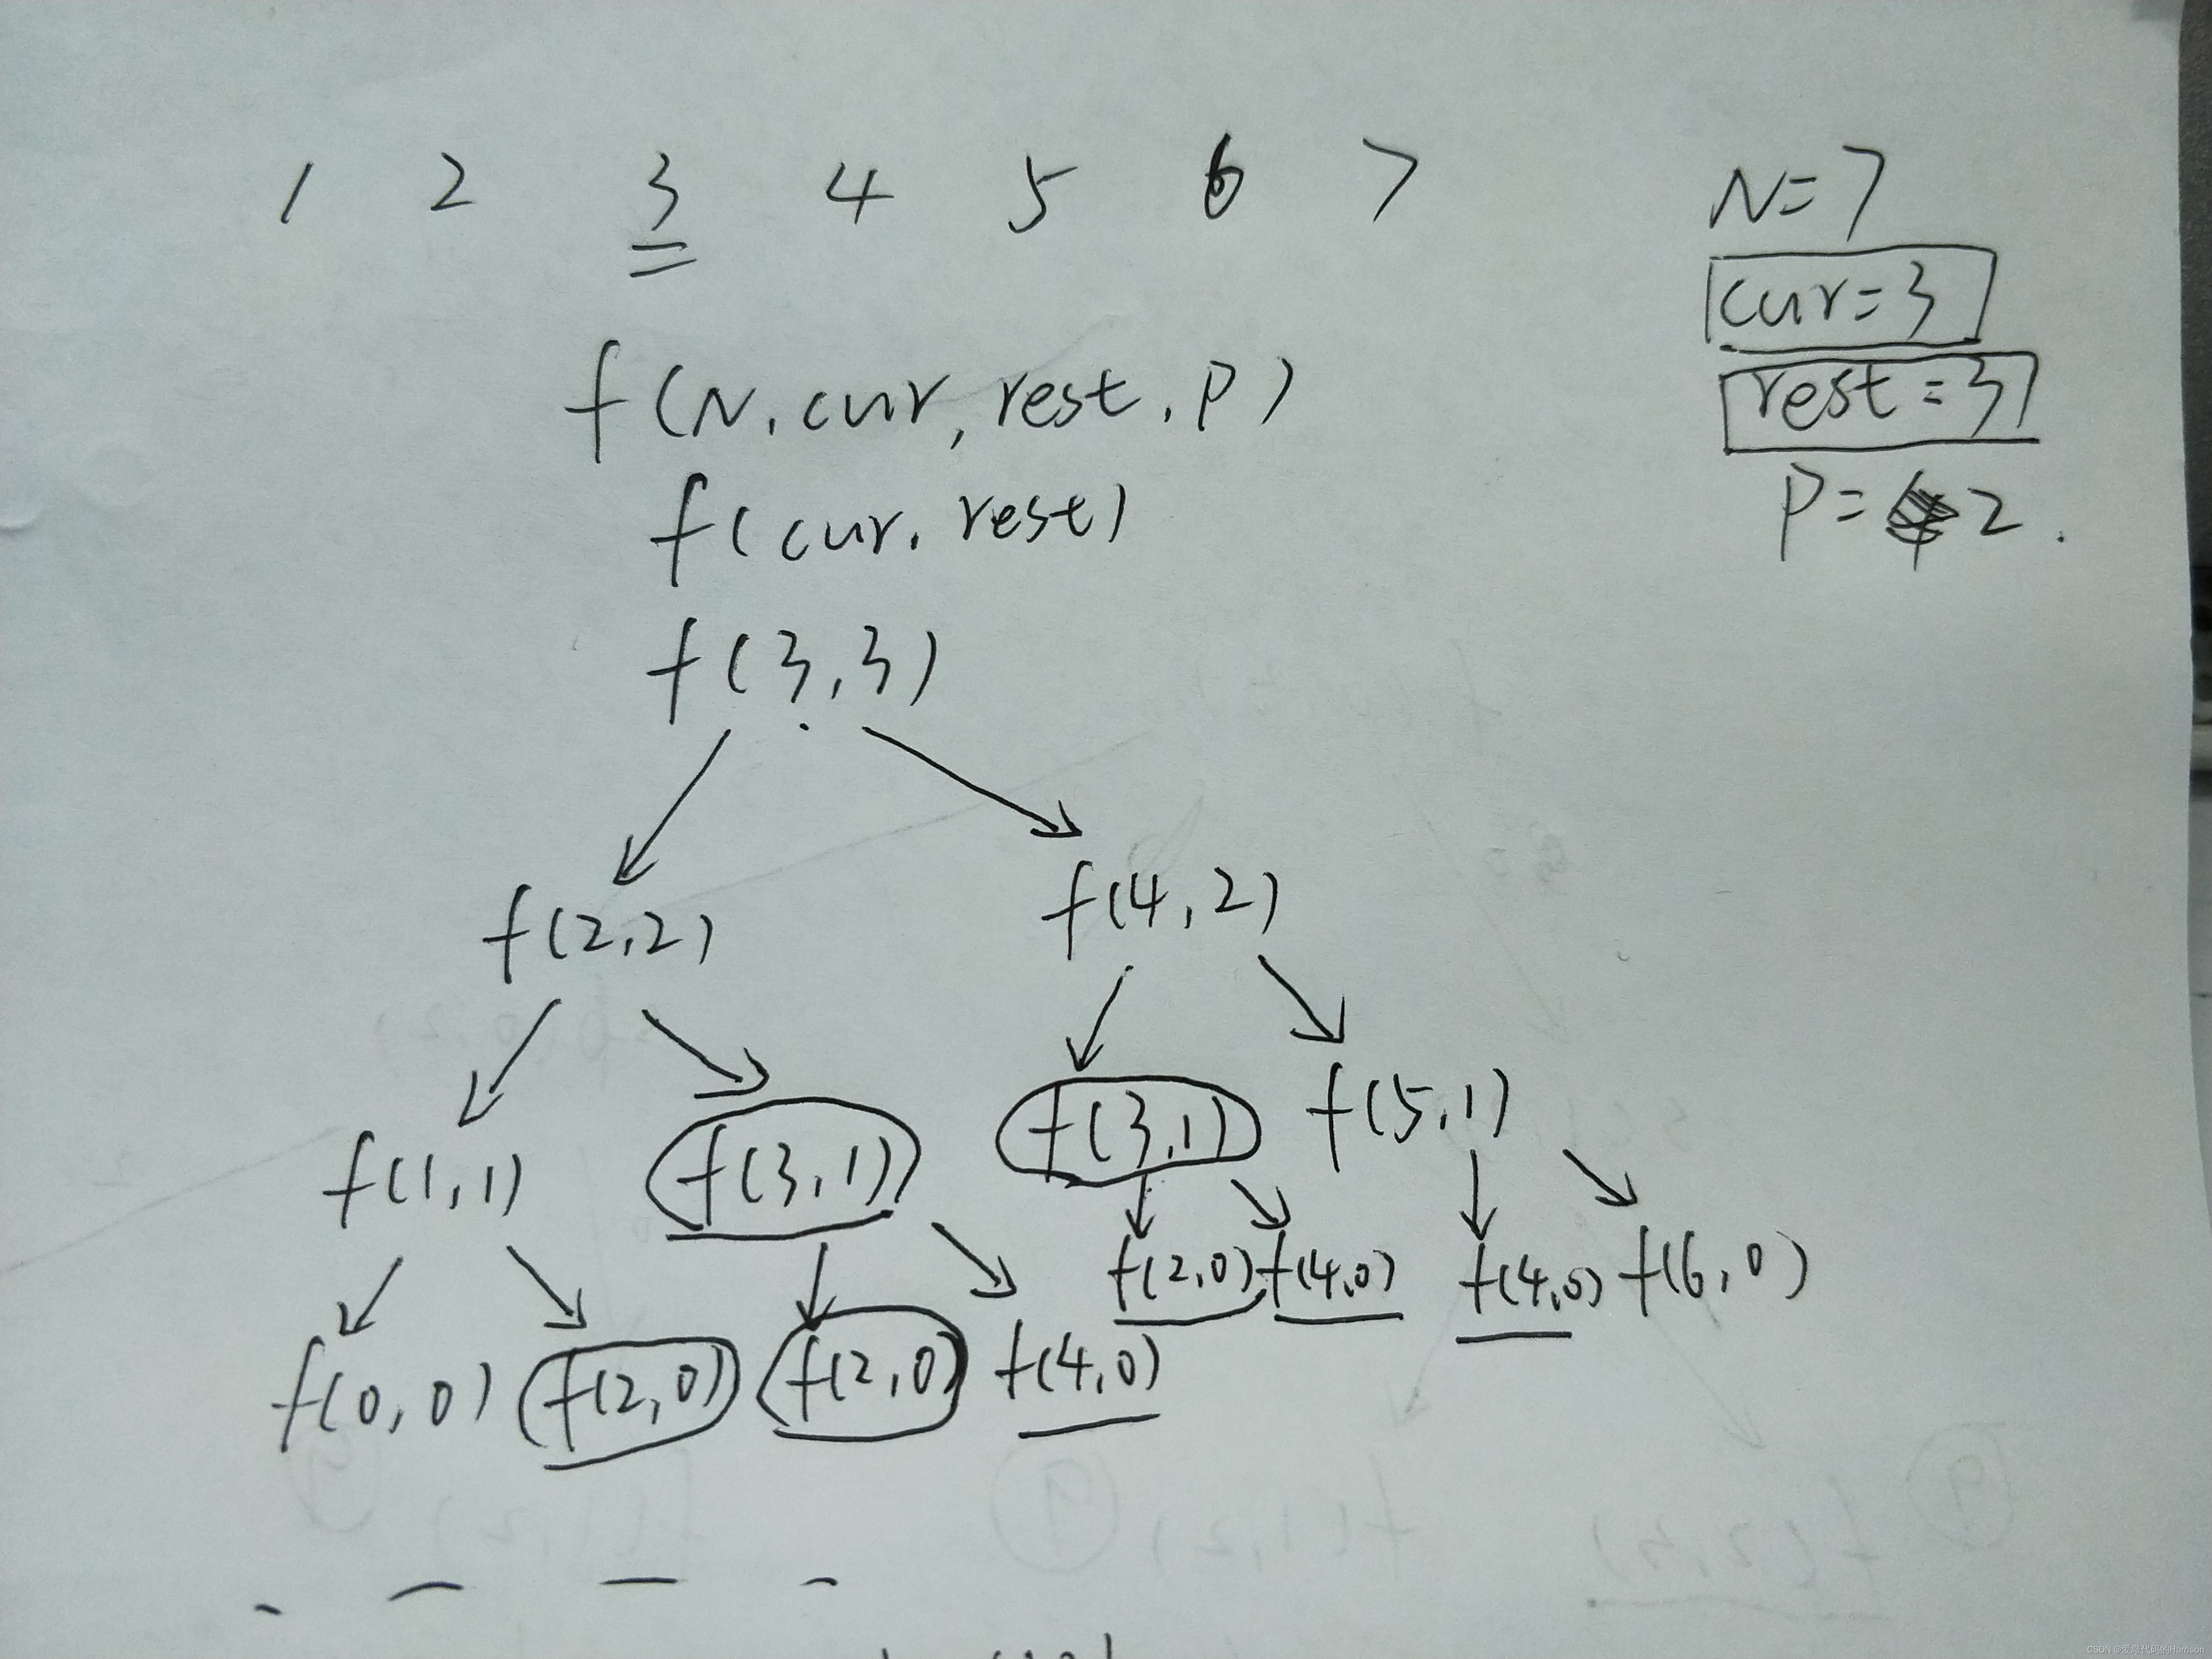 1 2 3 4 5 6 7
N=7
cur=3
rest=3
P= 2.
f(N,cur,rest,P)
f(cur,rest)
f(3,3)
f(2,2) f(4,2)
f(1,1) f(3,1) f(3,1) f(5,1)
f(2,0) f(4,0) f(4,0) f(6,0)
f(0,0) f(2,0) f(2,0) f(4,0)
CSDN @爱敲代码的Harrison